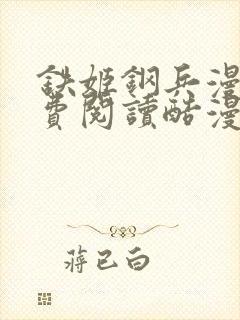 鉄姬鋼兵漫
費閱讀酷漫
蔣已白